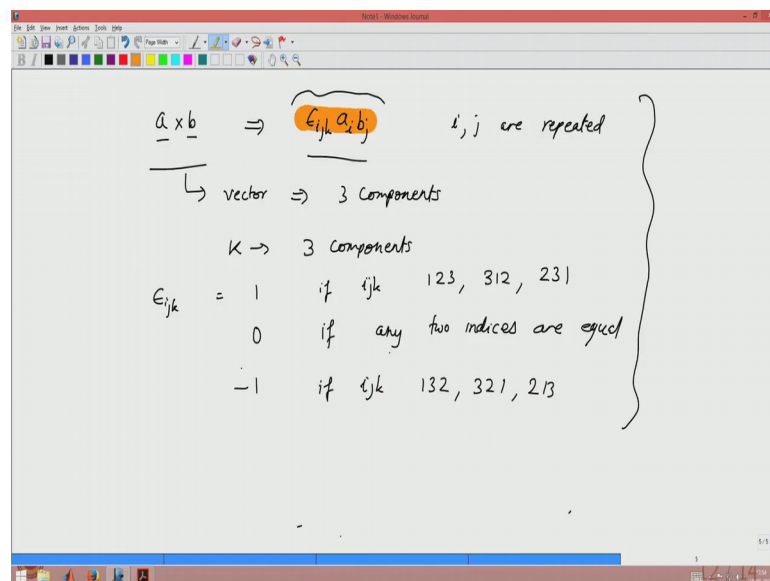 Note1 - Windows Journal
File Edit View Insert Actions Tools Help
Page Width
B I
a × b ⇒ ϵijk ai bj i, j are repeated
↳ vector ⇒ 3 Components
K → 3 Components
ϵijk = 1 if ijk 123, 312, 231
0 if any two indices are equal
-1 if ijk 132, 321, 213
5/5
5